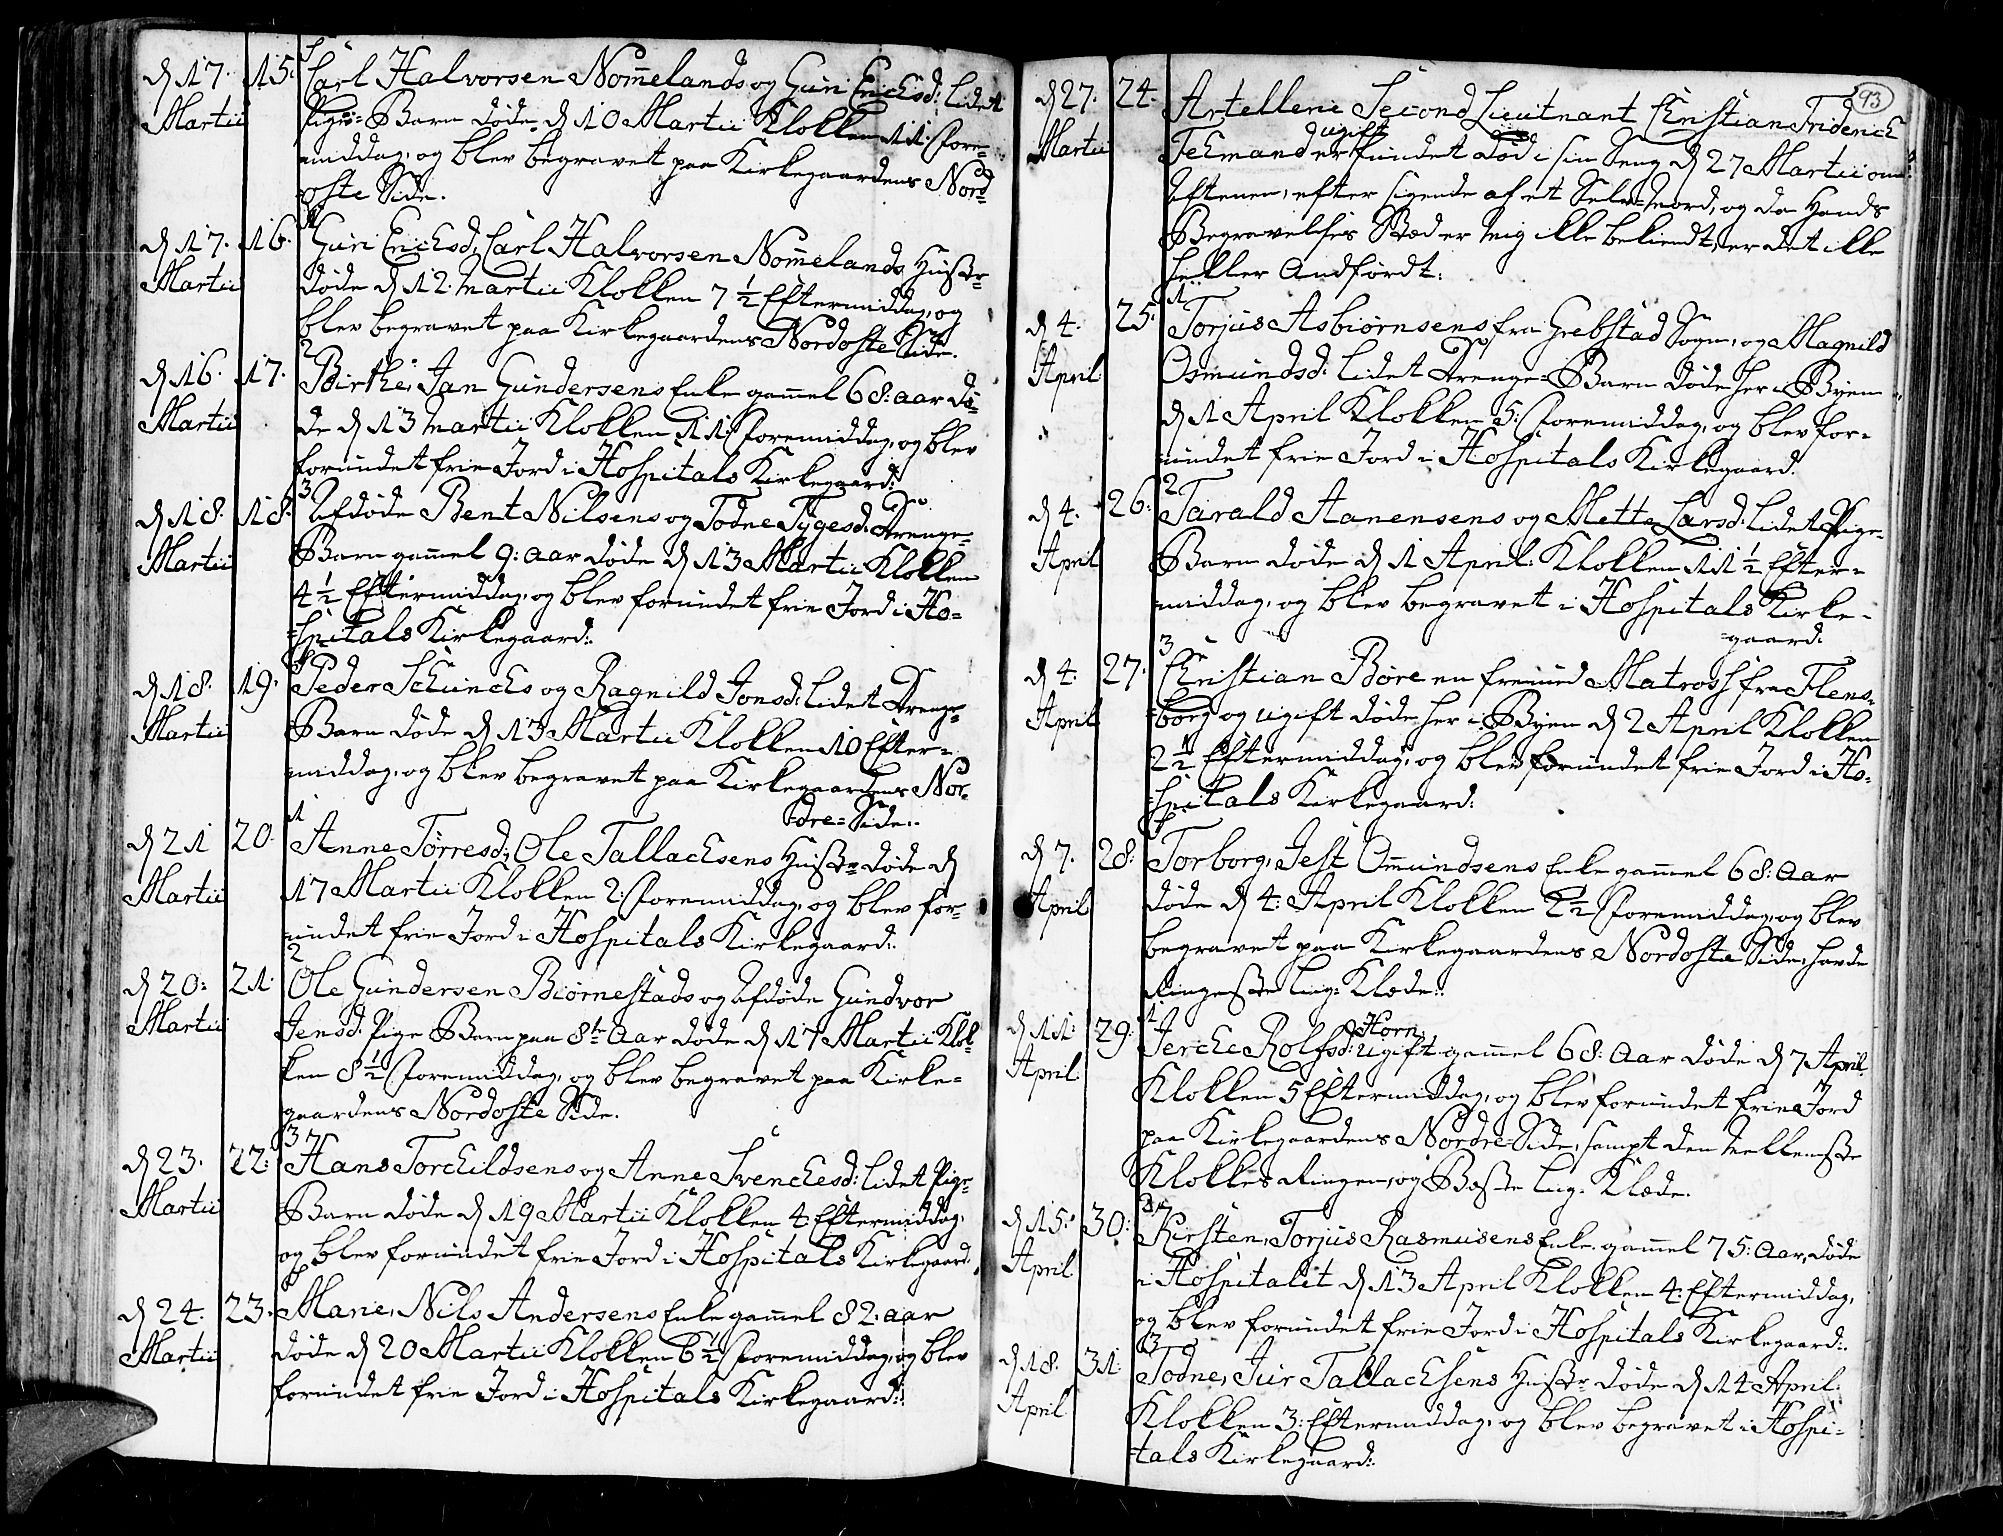 d 17. 15. Carl Halvorsen Nom̄elands og Guri Erichsd: lidet
Martii Pige-Barn døde d 10 Martii Klokken 11: Fore-
middag, og blev begravet paa Kirkegaardens Nord-
oste Side.
1
d 17. 16. Guri Erichsd, Carl Halvorsen Nom̄elands Hustr-
Martii døde d 12. Martii Klokken 7 ½ Eftermiddag, og
blev begravet paa Kirkegaardens Nordoste Side.
2
d 16. 17. Birthe, Jan Gundersens Enke gam̄el 68: aar dø-
Martii de d 13 Martii Klokken 11: Foremiddag, og blev
forundet frie Jord i Hospitals Kirkegaard:
3
d 18. 18. Afdøde Bent Nilsens og Todne Tygesd: Drenge-
Martii Barn gam̄el 9: aar døde d 13 Martii Klokken
4 ½ Eftermiddag, og blev forundet frie Jord i Ho-
spitals Kirkegaard:
d 18. 19. Peder Schuncks og Ragnild Jonsd: lidet Drenge-
Martii Barn døde d 13 Martii Klokken 10 Efter-
middag, og blev begravet paa Kirkegaardens Nor-
dre-Side:
1
d 21 20. Anne Tørresd, Ole Tallachsens Hustr- døde d
Martii 17 Martii Klokken 2: Foremiddag, og blev for-
undet frie Jord i Hospitals Kirkegaard:
2
d 20: 21. Ole Gundersen Biørnestads og Afdøde Gundvor
Martii Jensd: Pige Barn paa 8te Aar døde d 17 Martii Klok-
ken 8 ½ Foremiddag, og blev begravet paa Kirke-
gaardens Nordoste Side.
3
d 23. 22: Hans Torchildsens og Anne Svenchesd: lidet Pige-
Martii Barn døde d 19 Martii Klokken 4: Eftermiddag,
og blev forundet frie Jord i Hospitals Kirkegaard.
d 24. 23. Marie, Nils Andersens Enke gam̄el 82. aar
Martii døde d 20 Martii Klokken 6 ½ Foremiddag, og blev
forundet frie Jord i Hospitals Kirkegaard:
93
d 27. 24. Artellerie Second Lieutnant Christian Friderich
ugift
Martii Tehmand er fundet død i sin Seng d 27 Martii om
Aftenen, efter sigende af et Selv-Mord, og da Hands
Begravelses Stæd er mig ikke bekiendt, er det ikke
heller Andførdt.
1
d 4. 25: Torjus Asbiørnsens fra Grebstad Sogn, og Magnild
April Osmundsd: lidet Drenge-Barn døde her i Byen
d 1 April Klokken 5: Foremiddag, og blev for-
undet frie Jord i Hospitals Kirkegaard.
2
d 4. 26. Tarald Aanensens og Mette Larsd: lidet Pige-
April Barn døde d 1 April: Klokken 11 ½ Efter-
middag, og blev begravet i Hospitals Kirke-
gaard:
3
d 4. 27. Christian Børe en fremmed Matross fra Flens-
April borg og ugift døde her i Byen d 2 April Klokken
2 ½ Eftermiddag, og blev forundet frie Jord i Ho-
spitals Kirkegaard:
d 7. 28: Torborg, Jest Omundsens Enke gam̄el 68: Aar
April døde d 4: April Klokken 2 ½ Foremiddag, og blev
begravet paa Kirkegaardens Nordoste Side, havde
Ringeste Liig-Klæde:
1 Horn,
d 11: 29: Jerche Rolfsd: ugift gam̄el 68: Aar døde d 7 April
April. Klokken 5 Eftermiddag, og blev forundet frie Jord
paa Kirkegaardens Nordre Side, sampt den Mellemste
Klokkes Ringen, og Beste Liig-Klæde.
2
d 15: 30: Kirsten, Torjus Rasmusens Enke gam̄el 75: Aar, døde
April i Hospitalet d 13 April Klokken 4: Eftermiddag,
og blev forundet frie Jord i Hospitals Kirkegaard:
3
d 18. 31: Todne, Siur Tallachsens Hustr- døde d 14 April:
April Klokken 3: Eftermiddag, og blev begravet i Hospi-
tals Kirkegaard: